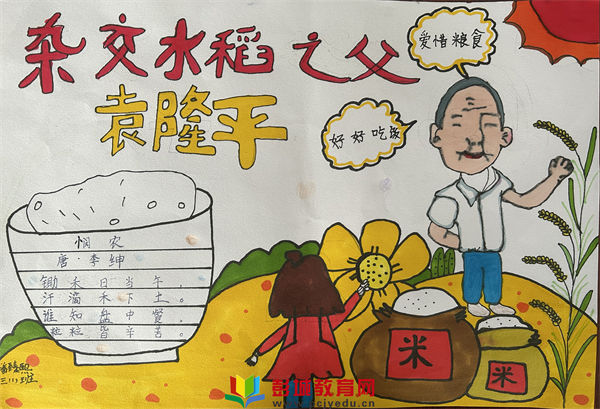 杂交水稻之父
袁隆平
爱惜粮食
好好吃饭
悯农
唐·李绅
锄禾日当午，
汗滴禾下土。
谁知盘中餐，
粒粒皆辛苦。
三(1)班
米
米
教育网